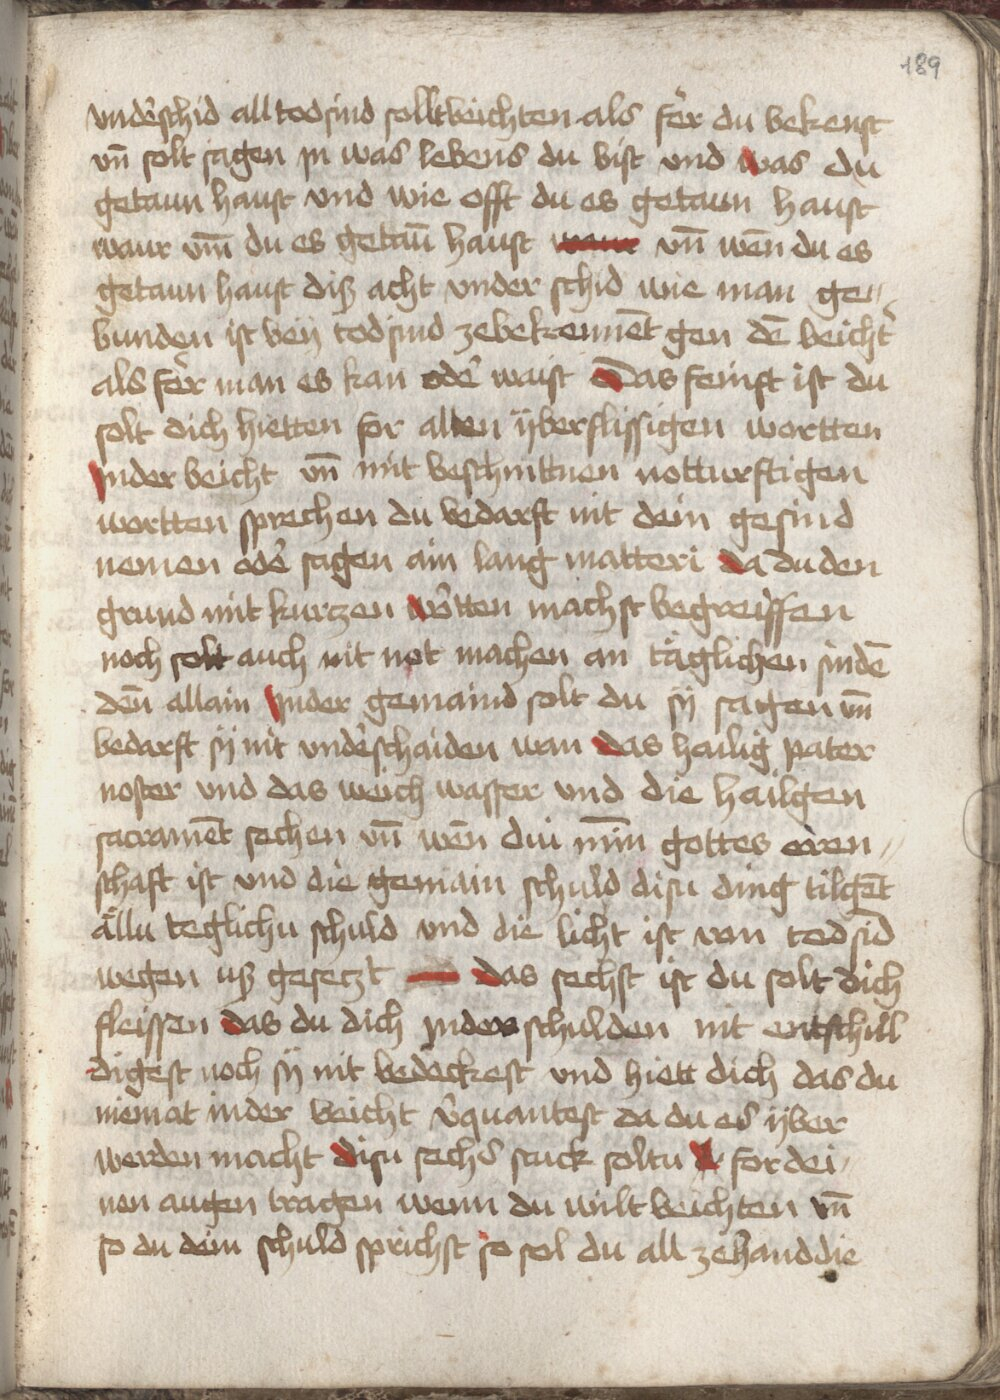 189
vnderschid all todsind sollt beichten als fer du bekenst
vn̄ solt sagen jn was lebens du bist vnd was du
getaun haust vnd wie offt du es getaun haust
waur vm̄ du es getaū haust vn̄ wen̄ du es
getaun haust diß acht vnder schid wie man ge„
bunden ist beÿ todsind zebekennēt gen dē beicht᷑
als fer man es kan ode᷑ waist Das feinft ist du
solt dich hietten for allen ÿberflissigen wortten
jnder beicht vn̄ mit beschnittnen notturftigen
wortten sprechen du bedarft nit dein gesind
nemen ode᷑ sagen ain lang matteri da du den
grund mit kurczen wo᷑tten machst begreiffen
noch solt auch nit not machen an täglichen sindē
den̄ allain jnder gemaind solt du sÿ sagen vn̄
bedarft sÿ nit vnde᷑schaiden wan das hailig pater
noster vnd das weich wasser vnd die hailgen
sacramēt sechen vn̄ wen̄ diu min̄ gottes eren„
schaft ist vnd die gemain schuld disu ding tilgēt
ällu teglichu schuld vnd die licht ist von todsīd
wegen uß gesetzt — das sechst ist du solt dich
fleissen das du dich jnder schulden nit entschul
digest noch sÿ nit bedeckest vnd hiett dich das du
niemat inder beicht v᷑quantest da du es ÿber
werden macht disu sechs stuck soltu for dei„
nen augen tragen wenn du wilt beichten vn̄
so du dein schuld sprichst so sol du all zehand die